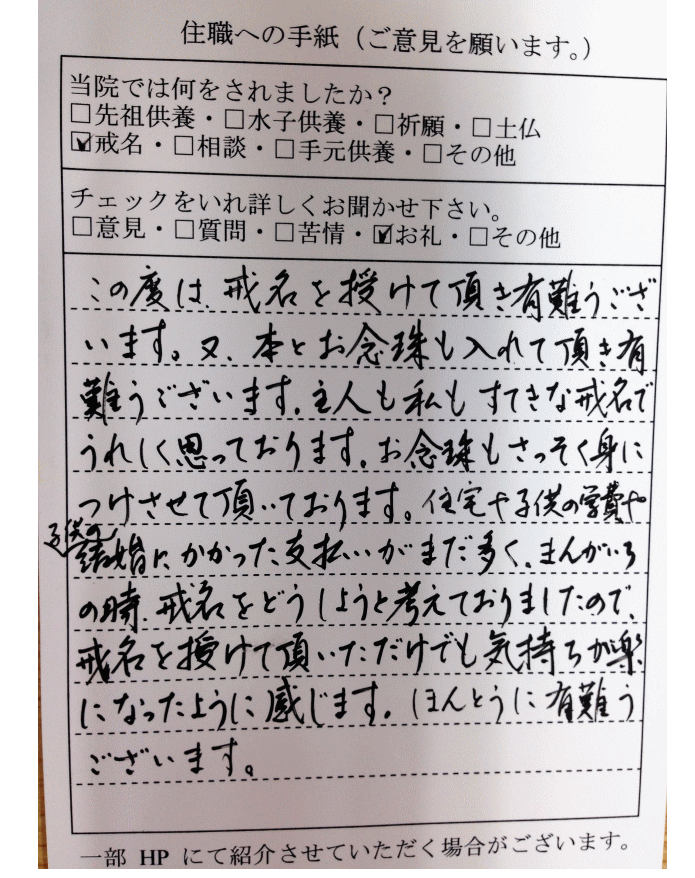 住職への手紙（ご意見を願います。）
当院では何をされましたか？
□先祖供養・□水子供養・□祈願・□土仏
☑戒名・□相談・□手元供養・□その他
チェックをいれ詳しくお聞かせ下さい。
□意見・□質問・□苦情・☑お礼・□その他
この度は、戒名を授けて頂き有難うござ
います。又、本とお念珠も入れて頂き有
難うございます。主人も私もすてきな戒名で
うれしく思っております。お念珠もさっそく身に
つけさせて頂いております。住宅や子供の学費や
子供の結婚にかかった支払いがまだ多く、まんがいち
の時、戒名をどうしようと考えておりましたので、
戒名を授けて頂いただけでも気持ちが楽
になったように感じます。ほんとうに有難う
ございます。
一部 HP にて紹介させていただく場合がございます。